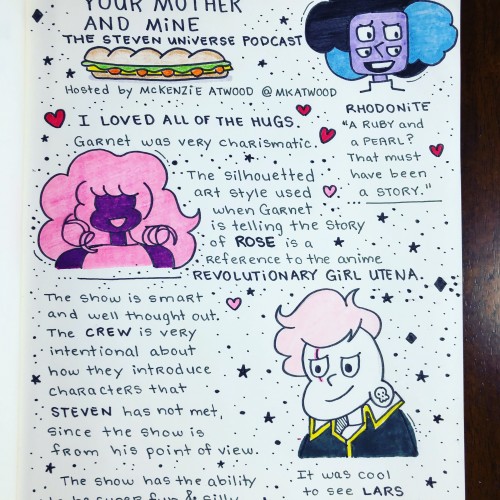 YOUR MOTHER
AND MINE
THE STEVEN UNIVERSE PODCAST
Hosted by MCKENZIE ATWOOD @MKATWOOD
RHODONITE
"A RUBY and
a PEARL?
That must
have been
a STORY."
I LOVED ALL OF THE HUGS.
Garnet was very charismatic.
The silhouetted
art style used
when Garnet
is telling the story
of ROSE is a
reference to the anime
REVOLUTIONARY GIRL UTENA.
The show is smart
and well thought out.
The CREW is very
intentional about
how they introduce
characters that
STEVEN has not met,
since the show is
from his point of view.
The show has the ability
to be super fun & silly
It was cool
to see LARS